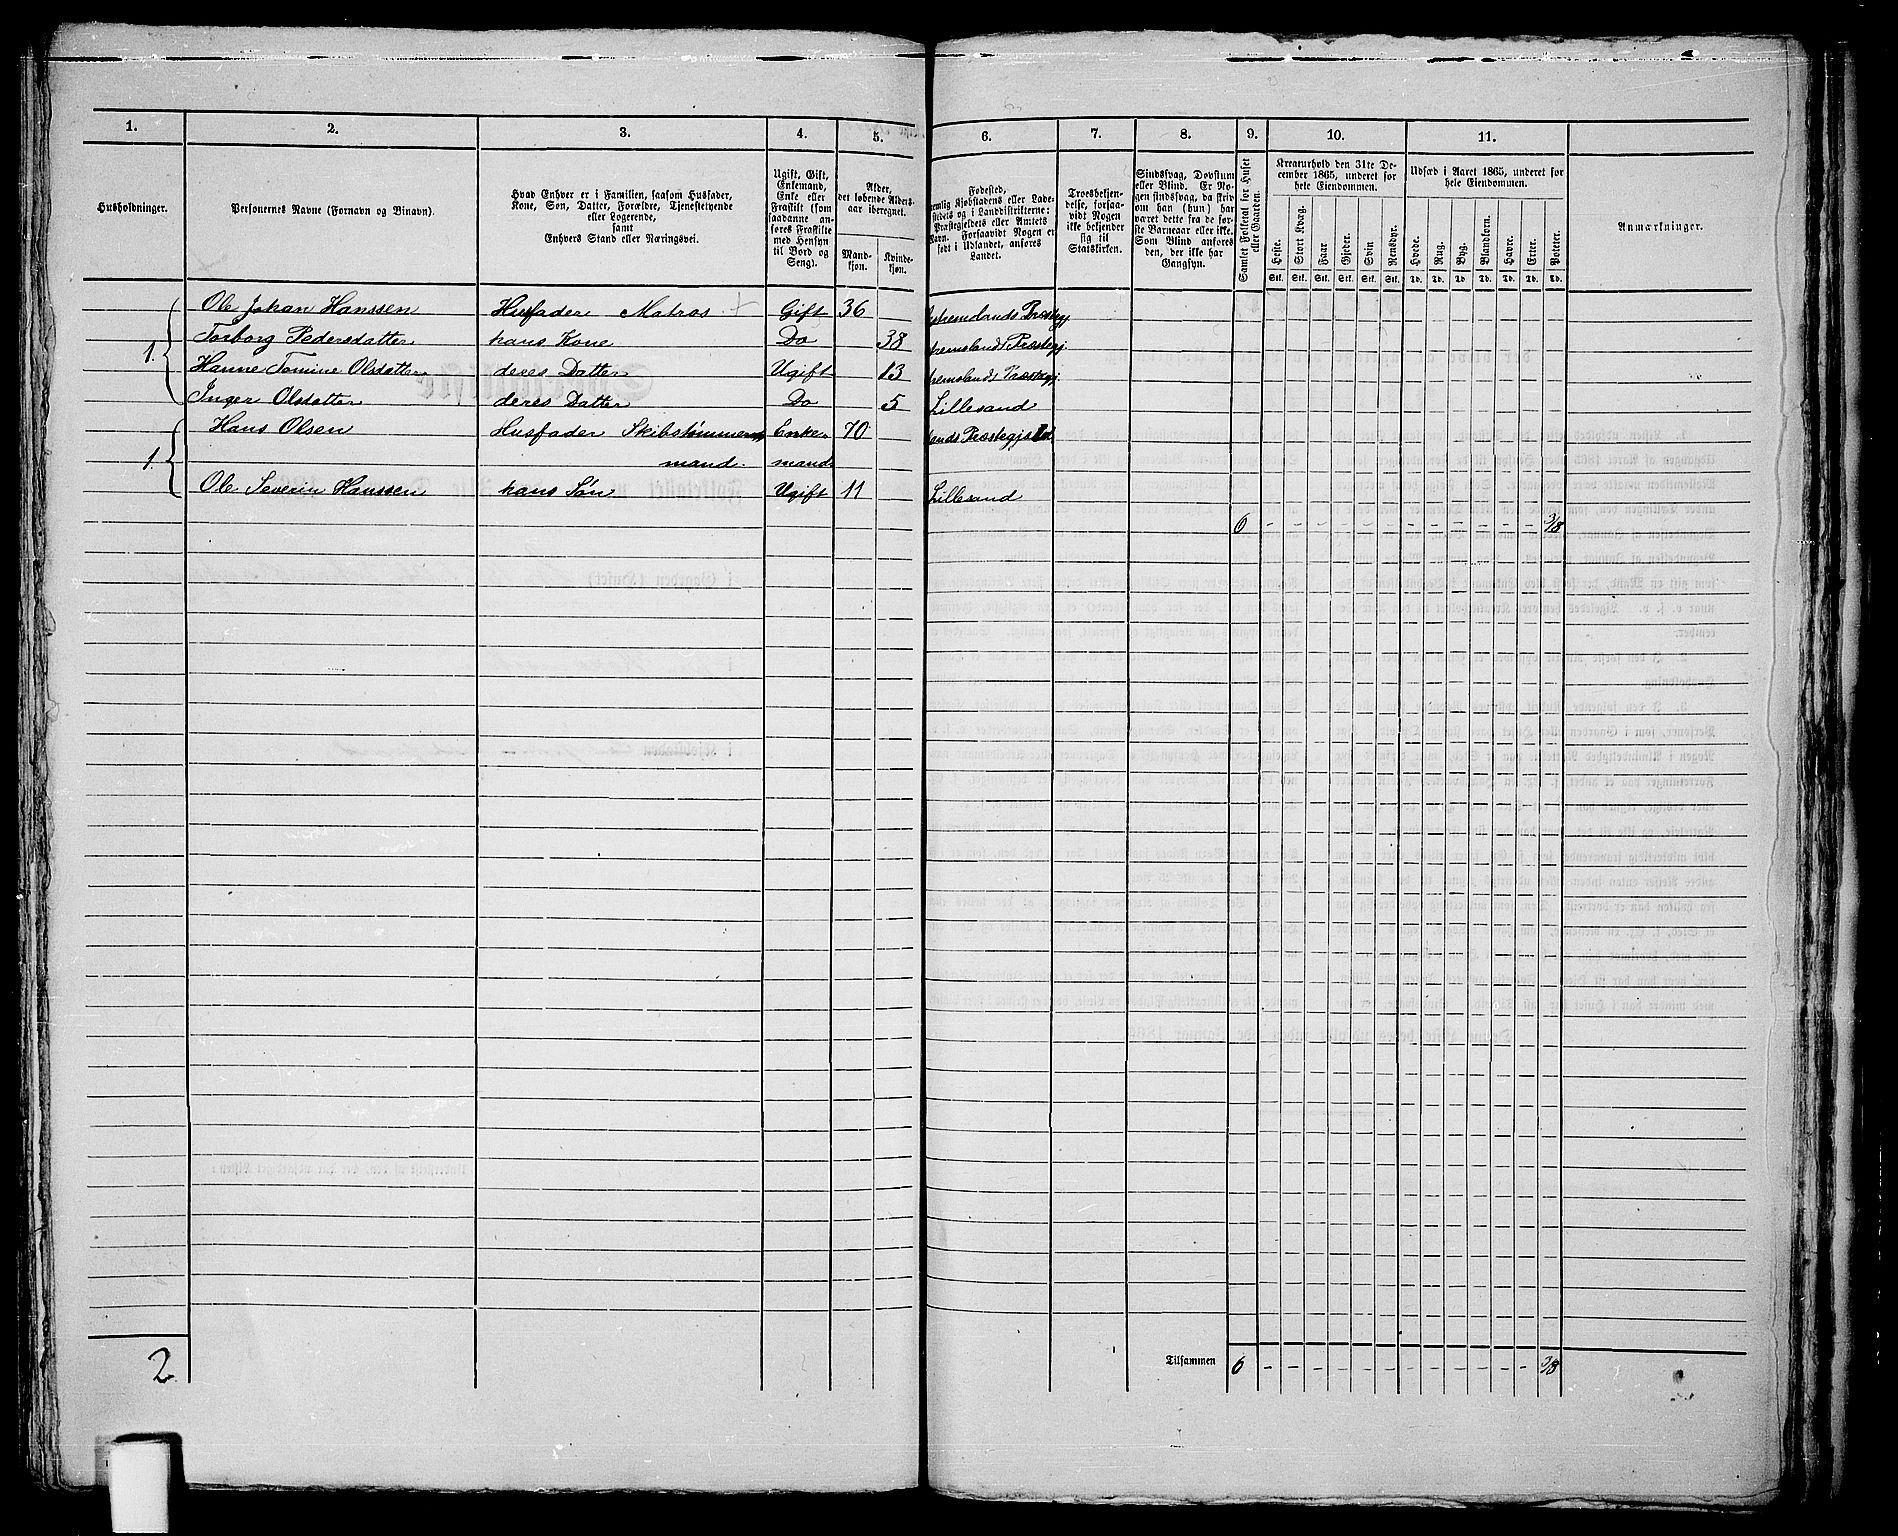 1. 2. 3. 4. 5. 6. 7. 8. 9. 10. 11.
Husholdninger.
Personernes Navne (Fornavn og Binavn).
Hvad Enhver er i Familien, saasom Husfader,
Kone, Søn, Datter, Forældre, Tjenestetyende
eller Logerende,
samt
Enhvers Stand eller Næringsvei.
Ugift, Gift,
Enkemand,
Enke eller
Fraskilt (som
saadanne an-
føres Fraskilte
med Hensyn
til Bord og
Seng).
Alder,
det løbende Alders-
aar iberegnet.
Mand-
kjøn.
Kvinde-
kjøn.
Fødested,
nemlig Kjøbstadens eller Lade-
stedets og i Landdistrikterne:
Præstegjeldets eller Amtets
Navn. Forsaavidt Nogen er
født i Udlandet, anføres
Landet.
Troesbekjen-
delse, forsaa-
vidt Nogen
ikke bekjender
sig til
Statskirken.
Sindssvag, Døvstum
eller Blind. Er No-
gen sindssvag, da skriv
om han (hun) har
været dette fra de før-
ste Barneaar eller ikke.
Som Blind anføres
den, der ikke har
Gangsyn.
Samlet Folketal for Huset
eller Gaarden.
Kreaturhold den 31te De-
cember 1865, underet for
hele Eiendommen.
Heste. Stort Kvæg. Faar. Gjeder. Svin. Rensdyr.
Stk. Stk. Stk. Stk. Stk. Stk.
Udsæd i Aaret 1865, underet for
hele Eiendommen.
Hvede. Rug. Byg. Blandkorn. Havre. Erter. Poteter.
Td. Td. Td. Td. Td. Td. Td.
Anmærkninger.
Ole Johan Hanssen Husfader Matros + Gift 36 Præstegj
1. Torborg Pedersdatter hans Kone Do 38 Præstegj.
Hanne Tomine Olsdatter deres Datter Ugift 13 Præstegj
Inger Olsdatter deres Datter Do 5 Lillesand
Hans Olsen Husfader Skibstømmer Enke- 70
1. mand. mand
Ole Severin Hanssen hans Søn Ugift 11 Lillesand
6 - - - - - - - - - - - - 3/8
2
Tilsammen 6 - - - - - - - - - - - - 3/8